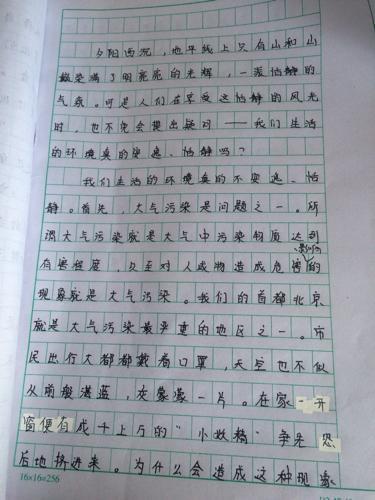 夕阳西沉，地平线上只有山和山
巅染满了明亮亮的光辉，一派恬静的
气氛。可是人们在享受这恬静的风光
时，也不免会提出疑问——我们生活
的环境真的安逸、恬静吗？
我们生活的环境真的不安逸、恬
静。首先，大气污染是问题之一。所
谓大气污染就是大气中污染物质达到
有害程度，以至对人或物造成危害的
现象就是大气污染。我们的首都北京
就是大气污染最严重的地区之一。市
民出行大都都戴着口罩，天空也不似
从前般湛蓝，灰蒙蒙一片。在家一开
窗便有成千上万的“小妖精”争先恐
后地挤进来。为什么会造成这种现象
16×16=256